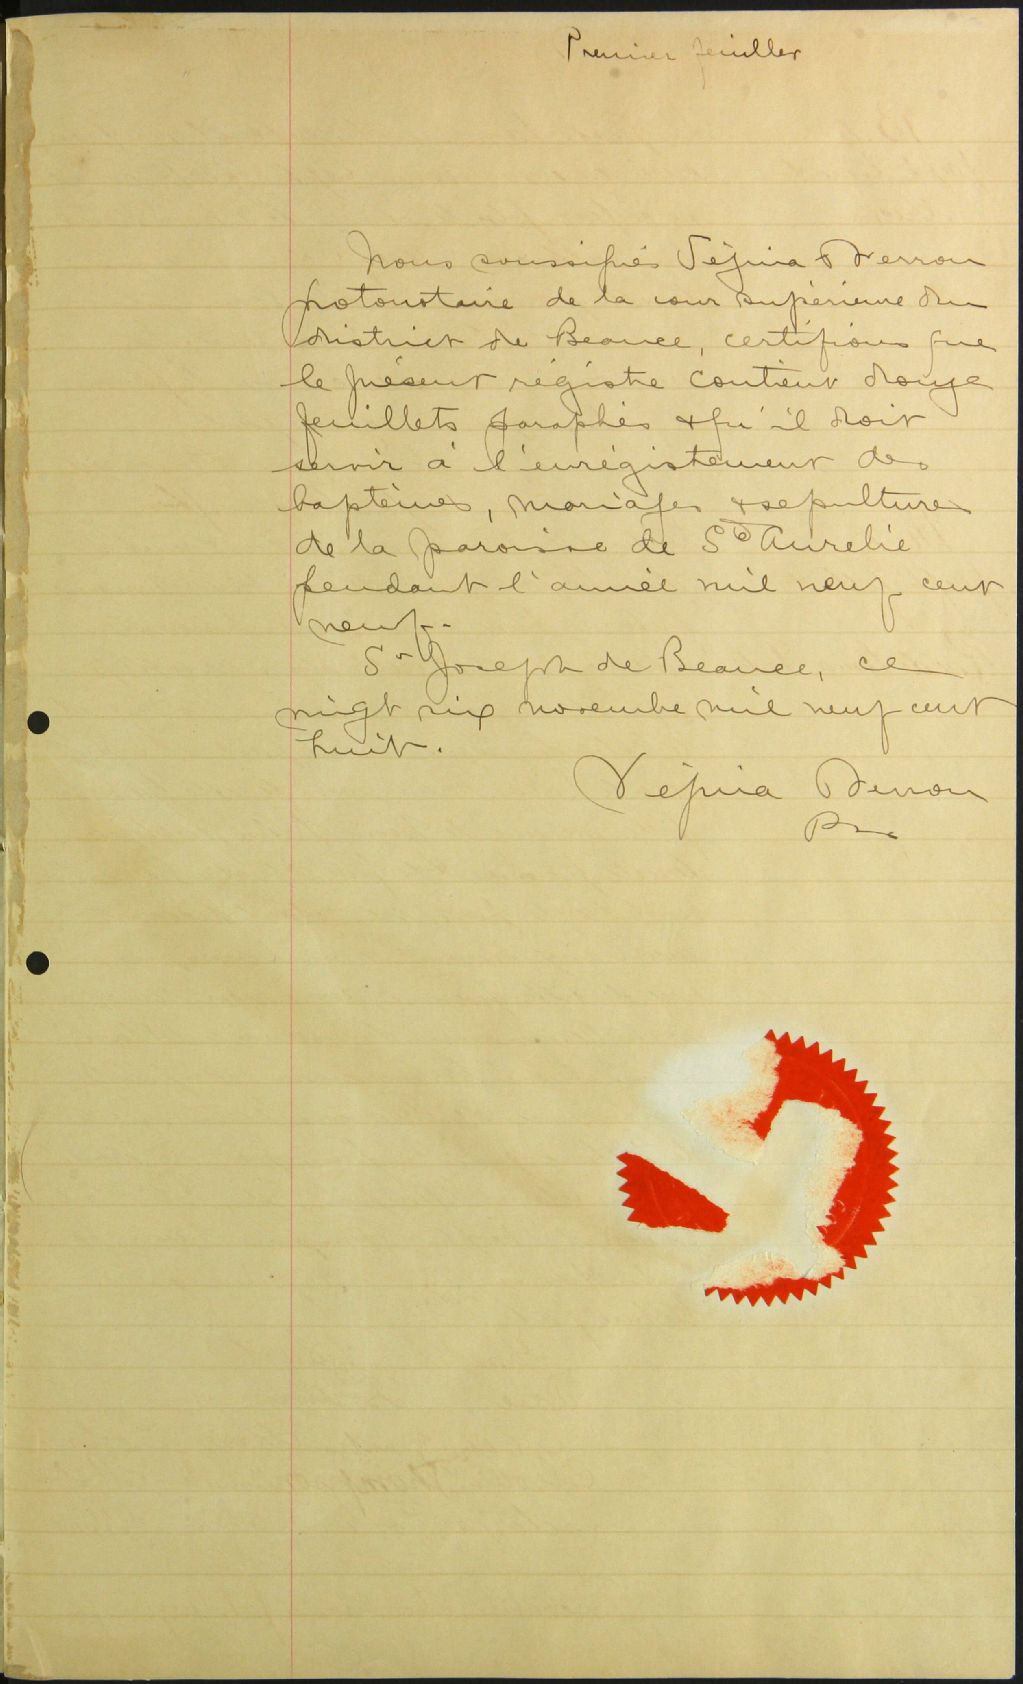 Premier feuillet
Nous soussignés Vézina & Verron
protonotaire de la cour supérieure du
district de Beauce, certifions que
le présent régistre contient douze
feuillets paraphés & qu'il doit
servir à l'enrégistement des
baptêmes, mariages & sepultures
de la paroisse de Ste Aurelie
pendant l'année mil neuf cent
neuf.-
St Joseph de Beauce, ce
vingt six novembre mil neuf cent
huit.